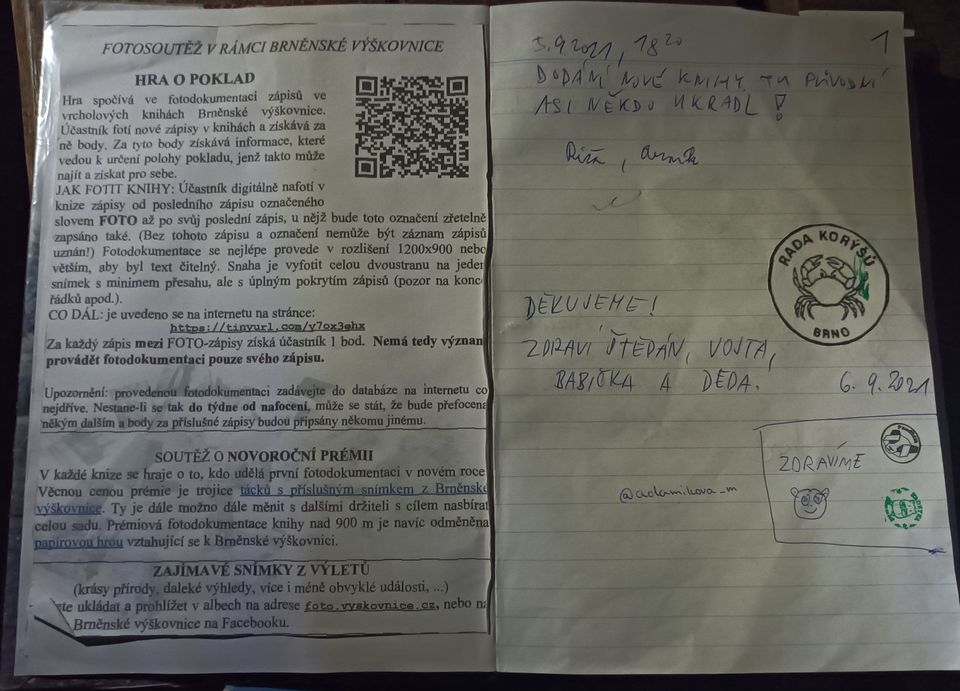 FOTOSOUTĚŽ V RÁMCI BRNĚNSKÉ VÝŠKOVNICE
HRA O POKLAD
Hra spočívá ve fotodokumentaci zápisů ve
vrcholových knihách Brněnské výškovnice.
Účastník fotí nové zápisy v knihách a získává za
ně body. Za tyto body získává informace, které
vedou k určení polohy pokladu, jenž takto může
najít a získat pro sebe.
JAK FOTIT KNIHY: Účastník digitálně nafotí v
knize zápisy od posledního zápisu označeného
slovem FOTO až po svůj poslední zápis, u nějž bude toto označení zřetelně
zapsáno také. (Bez tohoto zápisu a označení nemůže být záznam zápisů
uznán!) Fotodokumentace se nejlépe provede v rozlišení 1200x900 nebo
větším, aby byl text čitelný. Snaha je vyfotit celou dvoustranu na jeden
snímek s minimem přesahu, ale s úplným pokrytím zápisů (pozor na konc
řádků apod.).
CO DÁL: je uvedeno se na internetu na stránce:
https://tinyurl.com/y7ox3ehx
Za každý zápis mezi FOTO-zápisy získá účastník 1 bod. Nemá tedy význam
provádět fotodokumentaci pouze svého zápisu.
Upozornění: provedenou fotodokumentaci zadávejte do databáze na internetu co
nejdříve. Nestane-li se tak do týdne od nafocení, může se stát, že bude přefocena
někým dalším a body za příslušné zápisy budou připsány někomu jinému.
SOUTĚŽ O NOVOROČNÍ PRÉMII
V každé knize se hraje o to, kdo udělá první fotodokumentaci v novém roce.
Věcnou cenou prémie je trojice tácků s příslušným snímkem z Brněnské
výškovnice. Ty je dále možno dále měnit s dalšími držiteli s cílem nasbírat
celou sadu. Prémiová fotodokumentace knihy nad 900 m je navíc odměněna
papírovou hrou vztahující se k Brněnské výškovnici.
ZAJÍMAVÉ SNÍMKY Z VÝLETŮ
(krásy přírody, daleké výhledy, více i méně obvyklé události, ...)
ukládat a prohlížet v albech na adrese foto.vyskovnice.cz, nebo na
Brněnské výškovnice na Facebooku.
1
5.9.2021, 18 20
DODÁNÍ NOVÉ KNIHY, TU PŮVODNÍ
ASI NĚKDO UKRADL!
RADA KORÝŠŮ
BRNO
DĚKUJEME!
ZDRAVÍ ŠTĚPÁN, VOJTA,
BABIČKA A DĚDA.
6.9.2021
ZDRAVÍME
@adamikova_m